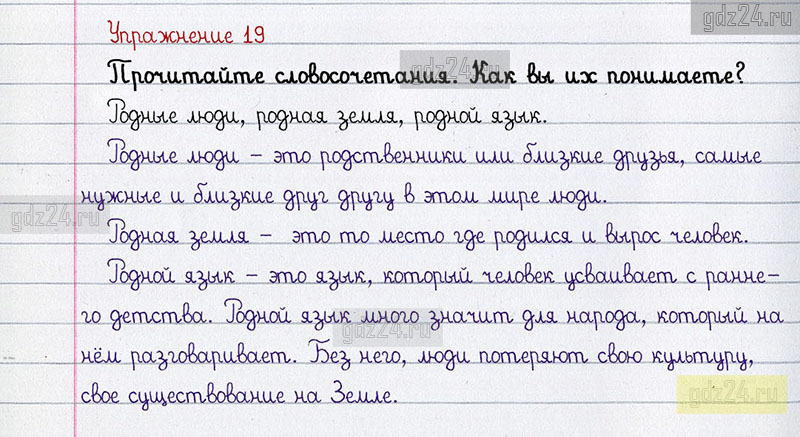 gdz24.ru
Упражнение 19
gdz24.ru
Прочитайте словосочетания. Как вы их понимаете?
Родные люди, родная земля, родной язык.
Родные люди – это родственники или близкие друзья, самые
нужные и близкие друг другу в этом мире люди.
gdz24.ru
Родная земля – это то место где родился и вырос человек.
Родной язык – это язык, который человек усваивает с ранне-
го детства. Родной язык много значит для народа, который на
gdz24.ru
нём разговаривает. Без него, люди потеряют свою культуру,
свое существование на Земле.
gdz24.ru